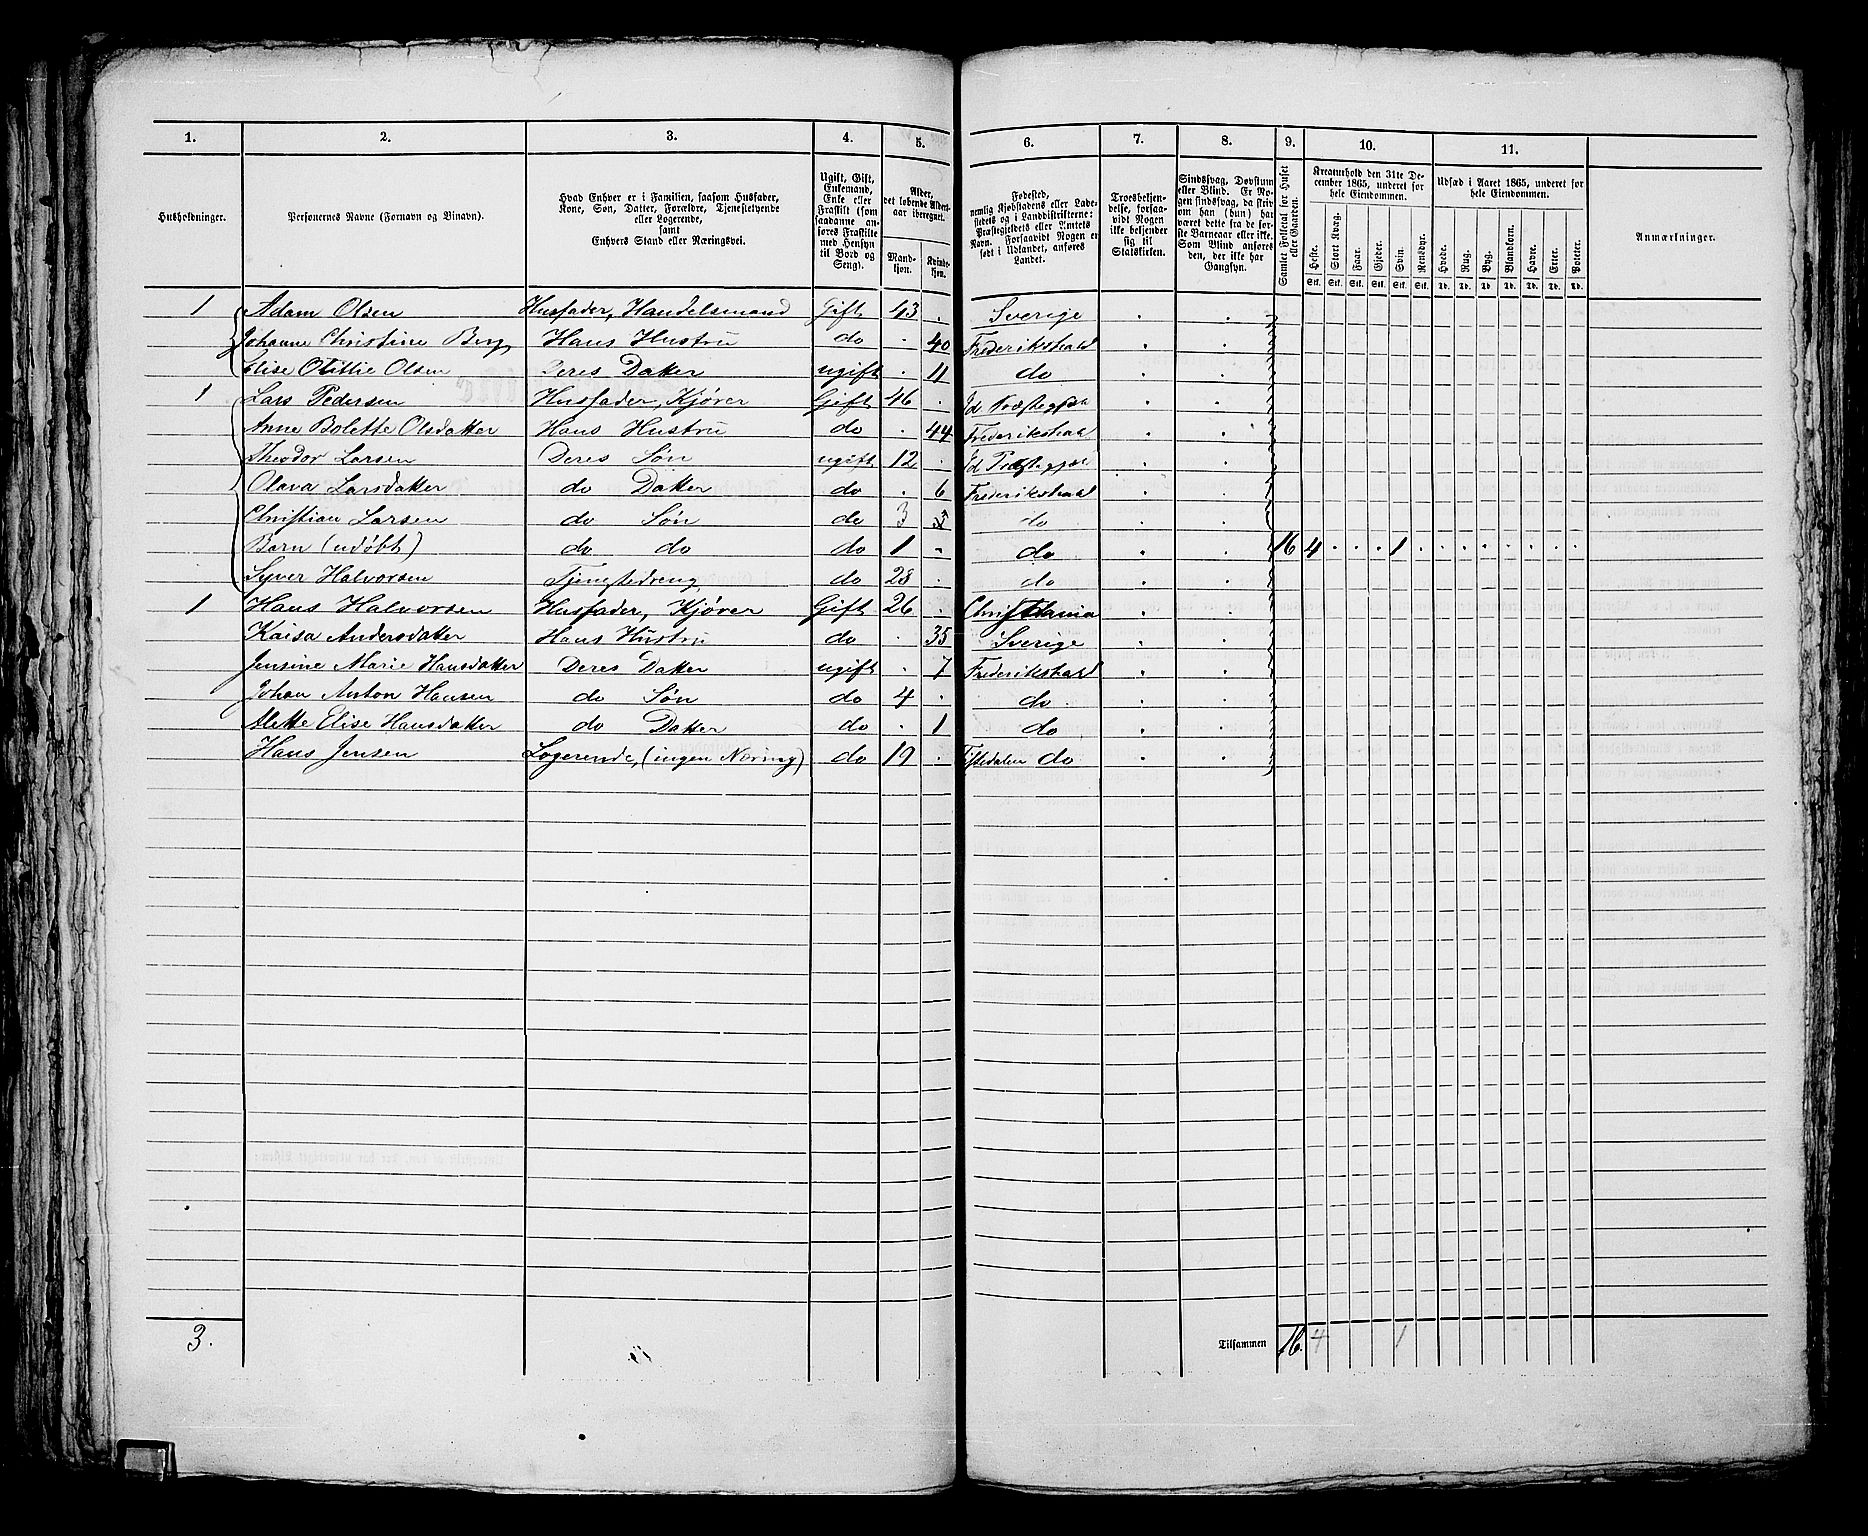 1. 2. 3. 4. 5. 6. 7. 8. 9. 10. 11.
Husholdninger. Personernes Navne (Fornavn og Binavn).
Hvad Enhver er i Familien, saasom Husfader,
Kone, Søn, Datter, Forældre, Tjenestetyende
eller Logerende,
samt
Enhvers Stand eller Næringsvei.
Ugift, Gift,
Enkemand,
Enke eller
Fraskilt (som
saadanne an-
føres Fraskilte
med Hensyn
til Bord og
Seng).
Alder,
det løbende Alders-
aar iberegnet.
Mand-
kjøn.
Kvinde-
kjøn.
Fødested,
nemlig Kjøbstadens eller Lade-
stedets og i Landdistrikterne:
Præstegjeldets eller Amtets
Navn. Forsaavidt Nogen er
født i Udlandet, anføres
Landet.
Troesbekjen-
delse, forsaa-
vidt Nogen
ikke bekjender
sig til
Statskirken.
Sindssvag, Døvstum
eller Blind. Er No-
gen sindssvag, da skriv
om han (hun) har
været dette fra de før-
ste Barneaar eller ikke.
Som Blind anføres
den, der ikke har
Gangsyn.
Samlet Folketal for Huset
eller Gaarden.
Kreaturhold den 31te De-
cember 1865, underet for
hele Eiendommen.
Heste. Stort Kvæg. Faar. Gjeder. Svin. Rensdyr.
Stk. Stk. Stk. Stk. Stk. Stk.
Udsæd i Aaret 1865, underet for
hele Eiendommen.
Hvede. Rug. Byg. Blandkorn. Havre. Erter. Poteter.
Td. Td. Td. Td. Td. Td. Td.
Anmærkninger.
1 Adam Olsen Husfader, Handelsmand Gift 43 . Sverige . .
Johanne Christine Berg Hans Hustru do . 40 Frederikshald . .
Elise Otillie Olsen Deres Datter ugift . 11 do . .
1 Lars Pedersen Husfader, Kjører Gift 46 . Id Præstegjæl . .
Anne Bolette Olsdatter Hans Hustru do . 44 Frederikshald . .
Theodor Larsen Deres Søn ugift 12 . Id Præstegjæl . .
Olava Larsdatter do Datter do . 6 Frederikshald . .
Christian Larsen do Søn do 3 3 do . .
Barn (udøbt) do do do 1 . do . . 16 4 . . . 1 . . . . . . . .
Syver Halvorsen Tjenestedreng do 28 . do . .
1 Hans Halvorsen Husfader, Kjører Gift 26 . Christiania . .
Kaisa Andersdatter Hans Hustru do . 35 Sverige . .
Jensine Marie Hansdatter Deres Datter ugift . 7 Frederikshald . .
Johan Anton Hansen do Søn do 4 . do . .
Alette Elise Hansdatter do Datter do . 1 do . .
Hans Jensen Logerende, (ingen Næring) do 19 . Tistedalen do . .
3. Tilsammen 16. 4 1